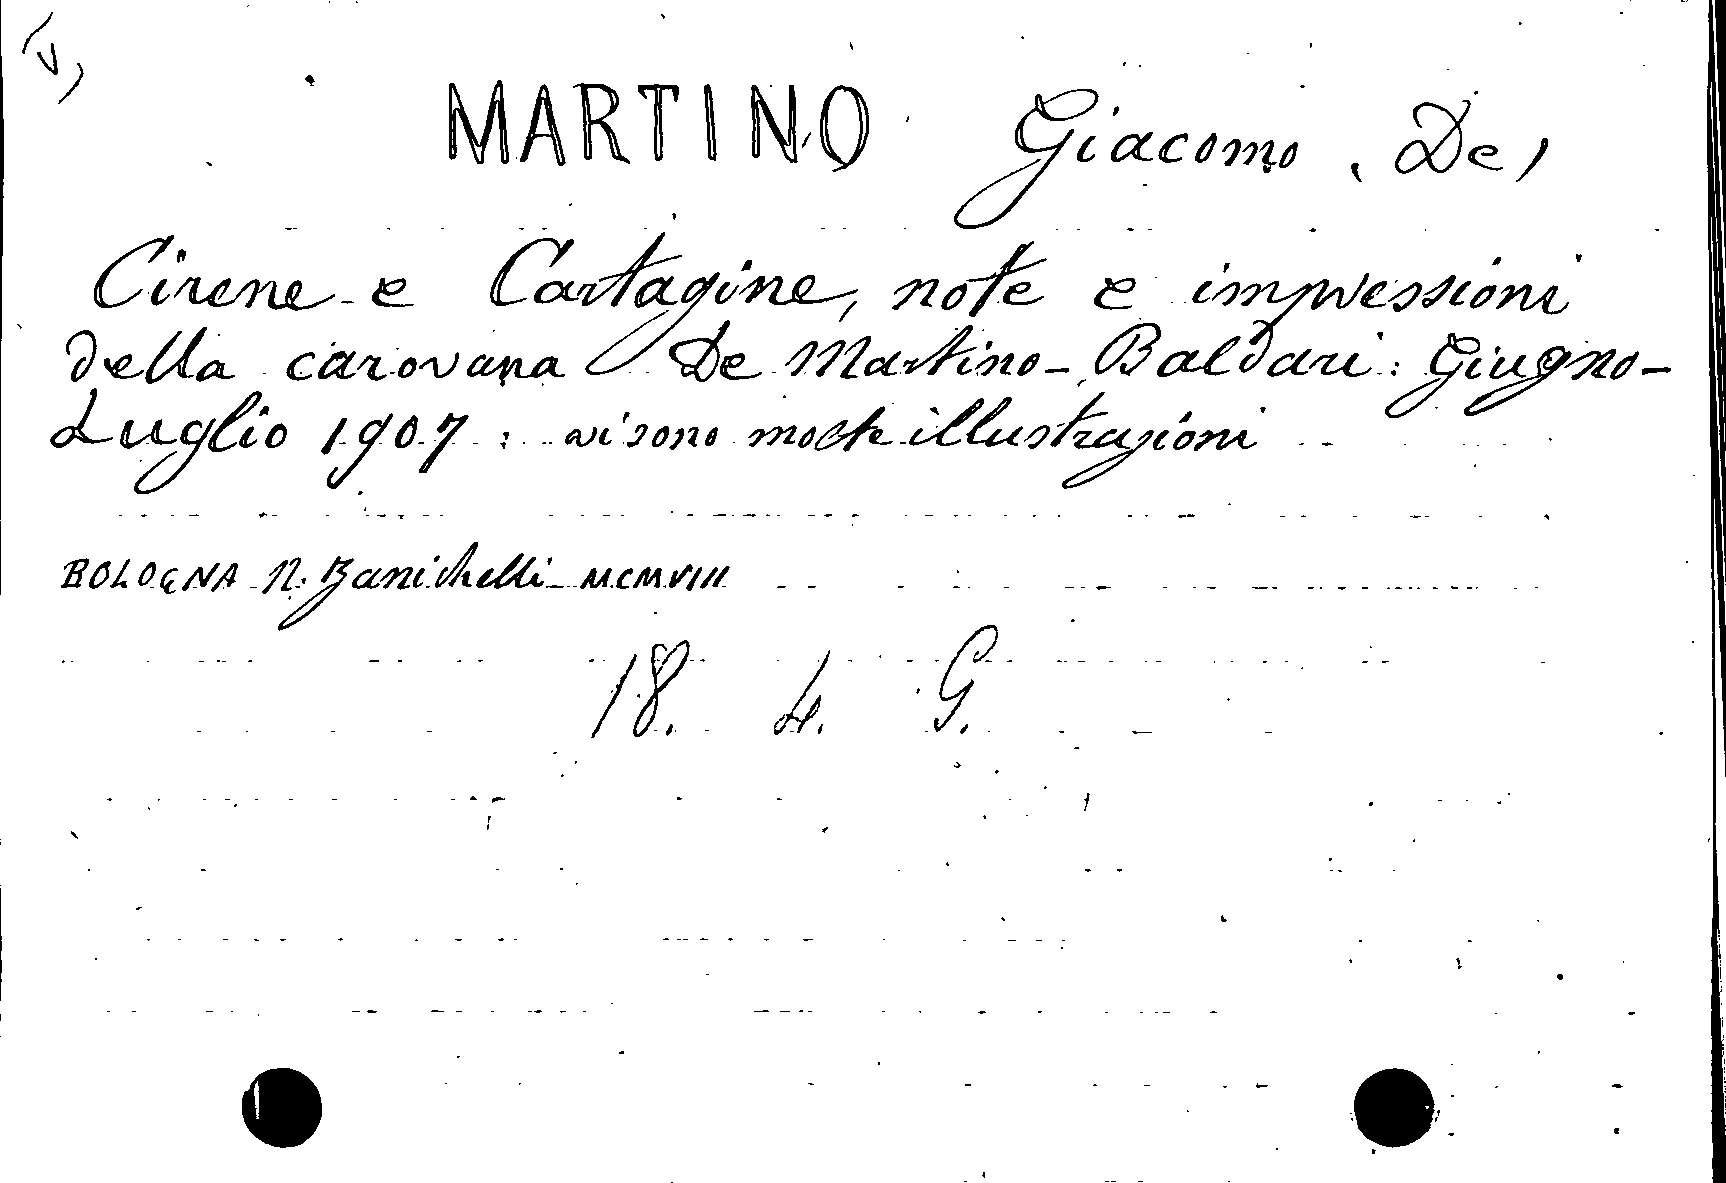 (v)
MARTINO Giacomo (De)
Cirene e Cartagine, note e impressioni
della carovana De Martino-Baldari: Giugno-
Luglio 1907: vi sono molte illustrazioni
BOLOGNA N. Zanichelli MCMVIII
18. 4. G.